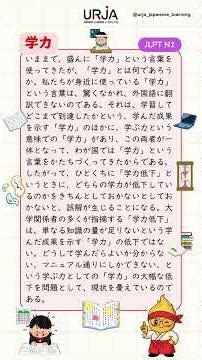 URJA
@urja_japanese_learning
学力
JLPT N1
いままで、盛んに「学力」という言葉
を使ってきたが、「学力」とは何であろう
か。私たちが身近に使っている「学力」
という言葉は、驚くなかれ、外国語に翻
訳できないのである。それは、学習して
どこまで到達したかという、学んだ成果
を示す「学力」のほかに、学ぶ力という
意味での「学力」があり、この両者が一
体となって、わが国では「学力」という
言葉をかたちづくってきたからである。
したがって、ひとくちに「学力低下」と
いうときに、どちらの学力が低下してい
るのかをきちんとしておかないとしてお
かないと、誤解が生じることになる。大
学関係者の多くが指摘する「学力低下」
は、単なる知識の量が足りないという学
んだ成果を示す「学力」の低下ではな
い。どうして学んだらよいか分からな
い、マニュアル通りにしかできない、と
いう学ぶ力としての「学力」の大幅な低
下を問題として、現状を憂えているので
ある。